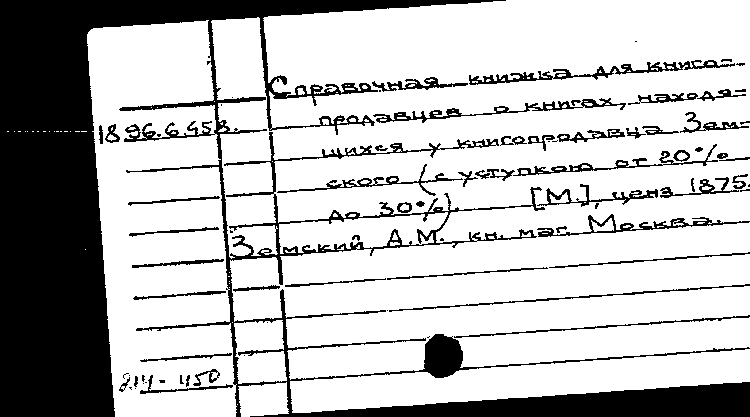 Справочная книжка для книго-
1896.6.458. продавцев о книгах, находя-
щихся у книгопродавца Зем-
ского (с уступкою от 20%
до 30%). [М.], ценз 1875.
Земский, А.М., кн. маг. Москва.
214-450